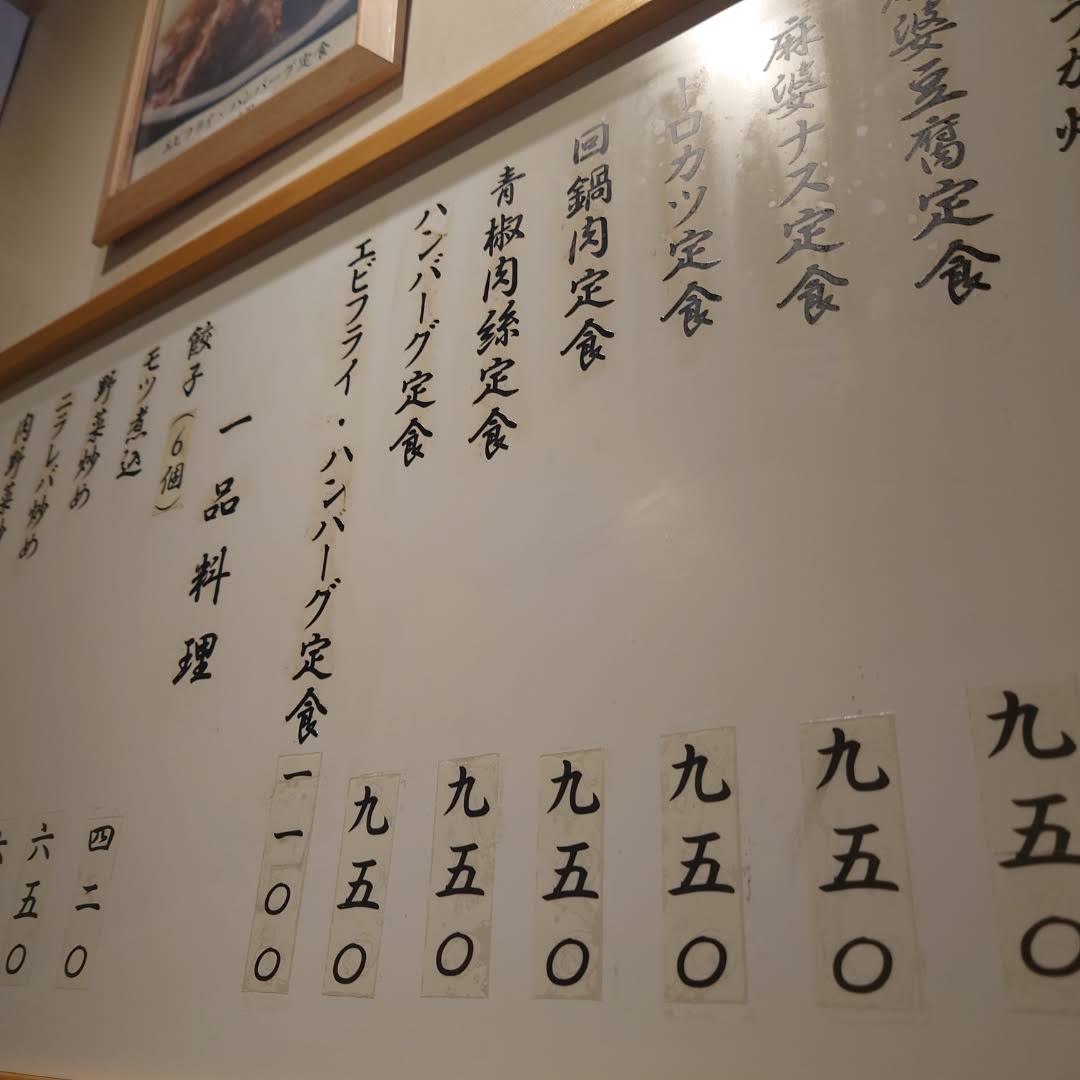 エビフライ・ハンバーグ定食
麻婆豆腐定食
九五〇
麻婆ナス定食
九五〇
トロカツ定食
九五〇
回鍋肉定食
九五〇
青椒肉絲定食
九五〇
ハンバーグ定食
九五〇
エビフライ・ハンバーグ定食
一一〇〇
一品料理
餃子(6個)
四二〇
モツ煮込
六五〇
野菜炒め
ニラレバ炒め
肉野菜炒